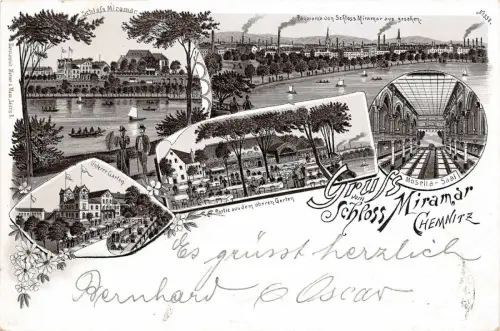 Schloss Miramar.
Panorama von Schloss Miramar aus gesehen.
Oberer Garten
Partie aus dem oberen Garten
Mosella-Saal
Gruss
vom
Schloss Miramar
CHEMNITZ
Es grüsst herzlich
Bernhard & Oscar